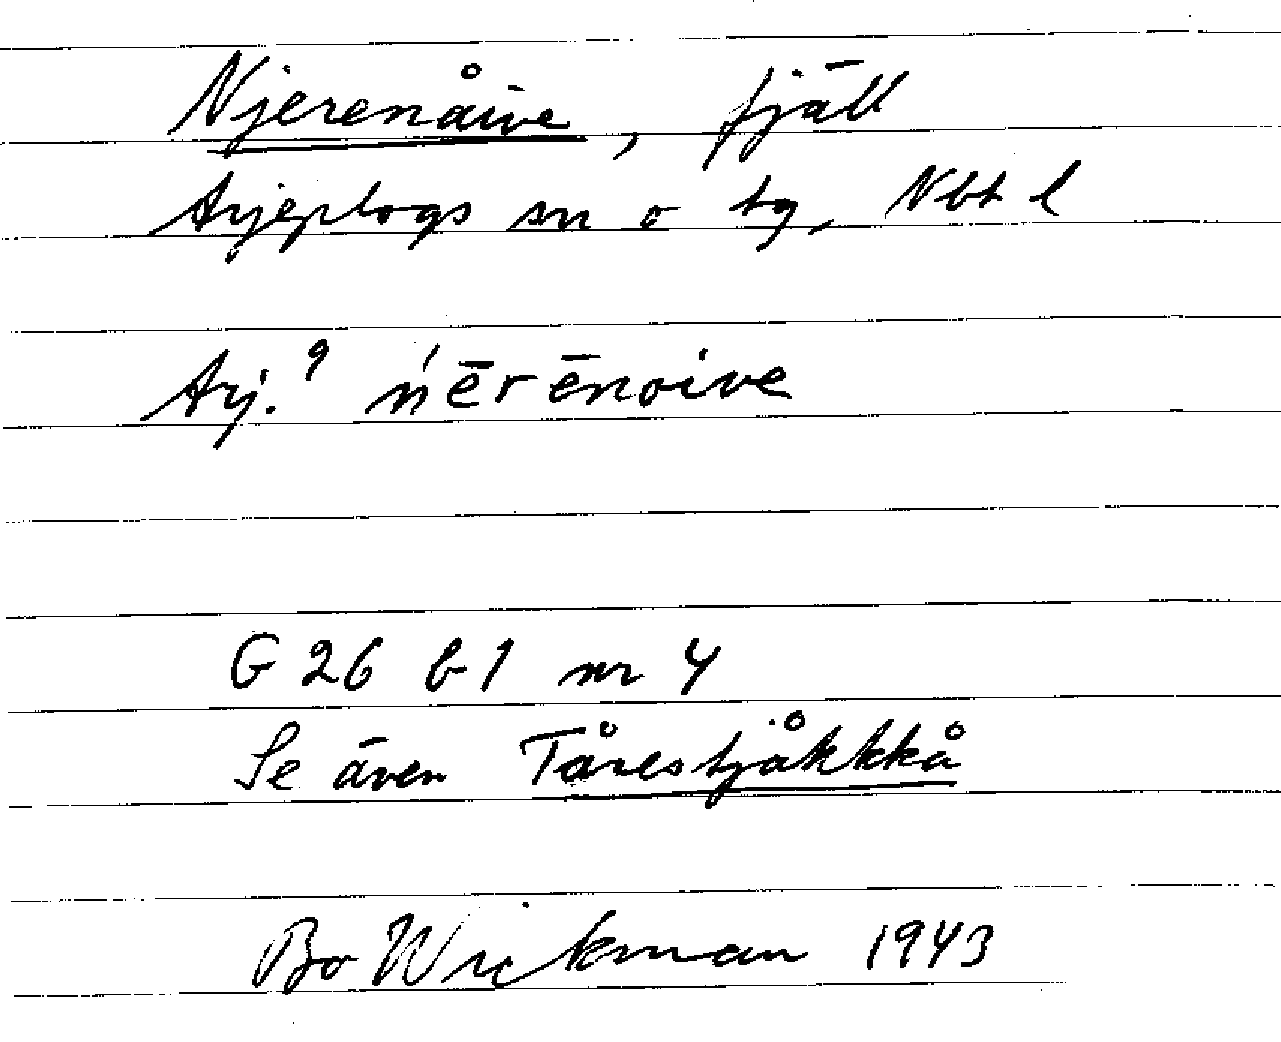 Njerenåive, fjäll
Arjeplogs sn o tg, Nbt l
Arj.9 ńērēnoive
G 26 b 1 nr 4
Se även Tårestjåkkkå
Bo Wickman 1943